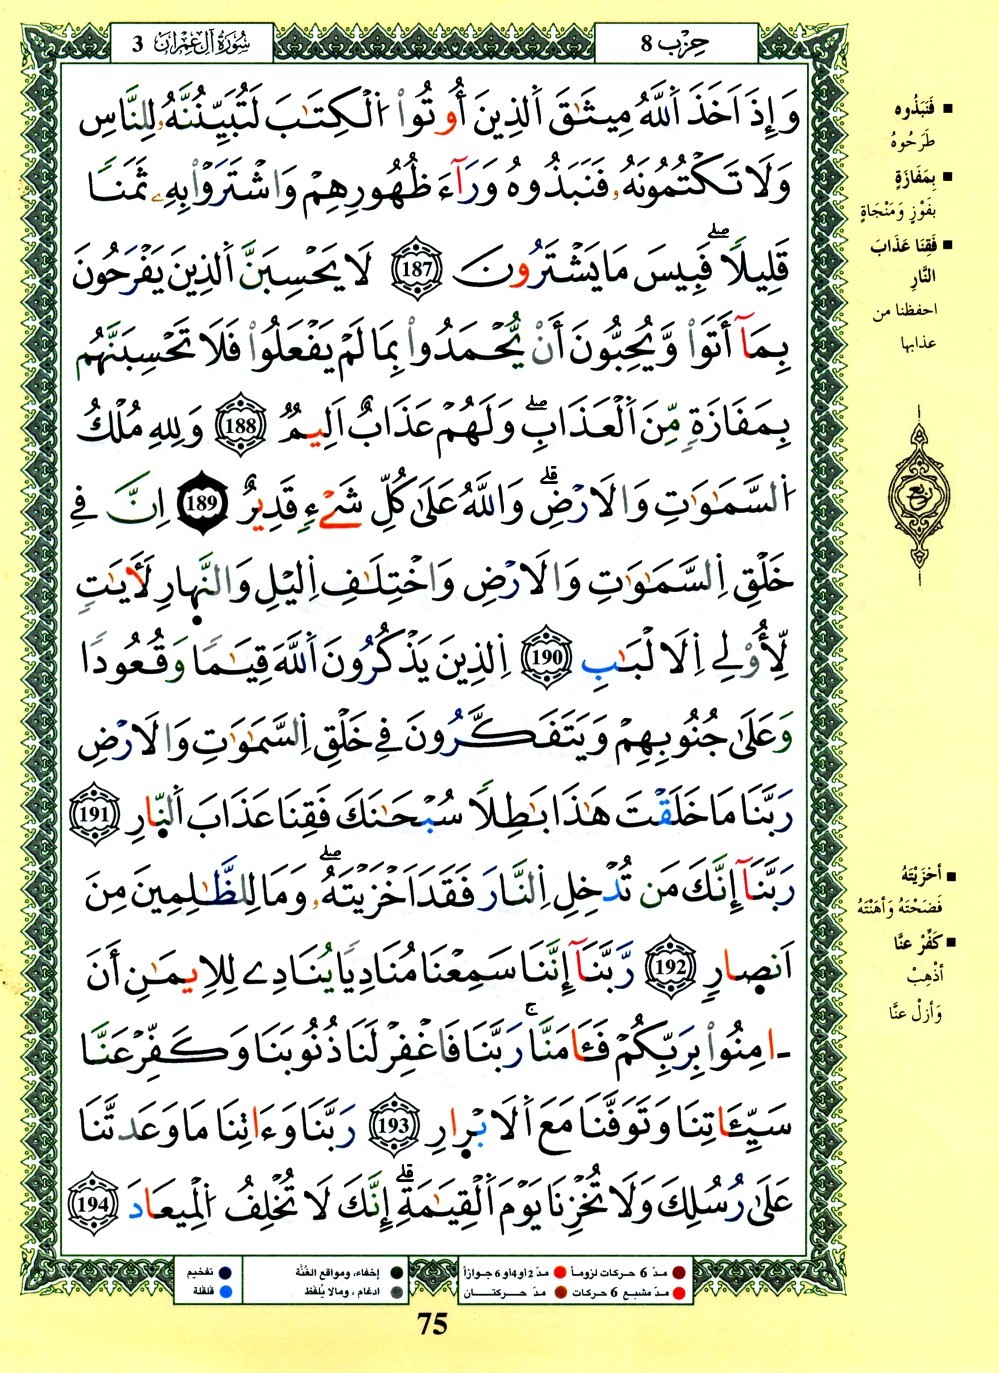 سُورَةُ آلِ عِمْرَانَ 3
حِزْب 8
وَإِذَ اَخَذَ اَ۬للَّهُ مِيثَٰقَ اَ۬لذِينَ أُوتُواْ اُ۬لْكِتَٰبَ لَتُبَيِّنُنَّهُۥ لِلنَّاسِ
وَلَا تَكْتُمُونَهُۥ فَنَبَذُوهُ وَرَآءَ ظُهُورِهِمْ وَاشْتَرَوْاْ بِهِۦ ثَمَناٗ
قَلِيلاٗۖ فَبِيسَ مَا يَشْتَرُونَ 187 لَا يَحْسِبَنَّ اَ۬لذِينَ يَفْرَحُونَ
بِمَآ أَتَواْ وَّيُحِبُّونَ أَنْ يُّحْمَدُواْ بِمَا لَمْ يَفْعَلُواْ فَلَا تَحْسِبَنَّهُم
بِمَفَازَةٖ مِّنَ اَ۬لْعَذَابِۖ وَلَهُمْ عَذَابٌ اَلِيمٞ 188 وَلِلهِ مُلْكُ
اُ۬لسَّمَٰوَٰتِ وَالَارْضِۗ وَاللَّهُ عَلَىٰ كُلِّ شَےْءٖ قَدِيرٌ 189 اِنَّ فِے
خَلْقِ اِ۬لسَّمَٰوَٰتِ وَالَارْضِ وَاخْتِلَٰفِ اِ۬ليْلِ وَالنَّهارِ لَأٓيَٰتٖ
لِّأُوْلِے اِ۬لَالْبَٰبِ 190 اِ۬لذِينَ يَذْكُرُونَ اَ۬للَّهَ قِيَٰماٗ وَقُعُوداٗ
وَعَلَىٰ جُنُوبِهِمْ وَيَتَفَكَّرُونَ فِے خَلْقِ اِ۬لسَّمَٰوَٰتِ وَالَارْضِ
رَبَّنَا مَا خَلَقْتَ هَٰذَا بَٰطِلاٗ سُبْحَٰنَكَ فَقِنَا عَذَابَ اَ۬لنّارِ 191
رَبَّنَآ إِنَّكَ مَن تُدْخِلِ اِ۬لنَّارَ فَقَدَ اَخْزَيْتَهُۥۖ وَمَا لِلظَّٰلِمِينَ مِنَ
اَنصارٖ 192 رَّبَّنَآ إِنَّنَا سَمِعْنَا مُنَادِياٗ يُنَادِے لِلِايمَٰنِ أَنَ
اٰمِنُواْ بِرَبِّكُمْ فَـَٔامَنَّاۚ رَبَّنَا فَاغْفِرْ لَنَا ذُنُوبَنَا وَكَفِّرْ عَنَّا
سَيِّـَٔاتِنَا وَتَوَفَّنَا مَعَ اَ۬لَابْرارِ 193 رَبَّنَا وَءَاتِنَا مَا وَعَدتَّنَا
عَلَىٰ رُسُلِكَ وَلَا تُخْزِنَا يَوْمَ اَ۬لْقِيَٰمَةِۗ إِنَّكَ لَا تُخْلِفُ اُ۬لْمِيعَادَ 194
■ فَنَبَذُوه
طَرَحُوهُ
■ بِمَفَازَةٍ
بفَوْزٍ وَمَنْجَاةٍ
■ فَقِنَا عَذَابَ
النَّارِ
احفظنا من
عذابها
ربع
■ أخْزَيْتَهُ
فَضَحْتَهُ وَأهَنْتَهُ
■ كَفِّرْ عنَّا
أذْهِبْ
وَأزِلْ عنَّا
مدّ 6 حركات لزوماً مدّ 2 أو 4 أو 6 جوازاً
مدّ مشبع 6 حركات مدّ حــركتـــان
إخفاء، ومواقع الغُنَّة
ادغام ، ومالا يُلفَظ
تفخيم
قلقلة
75